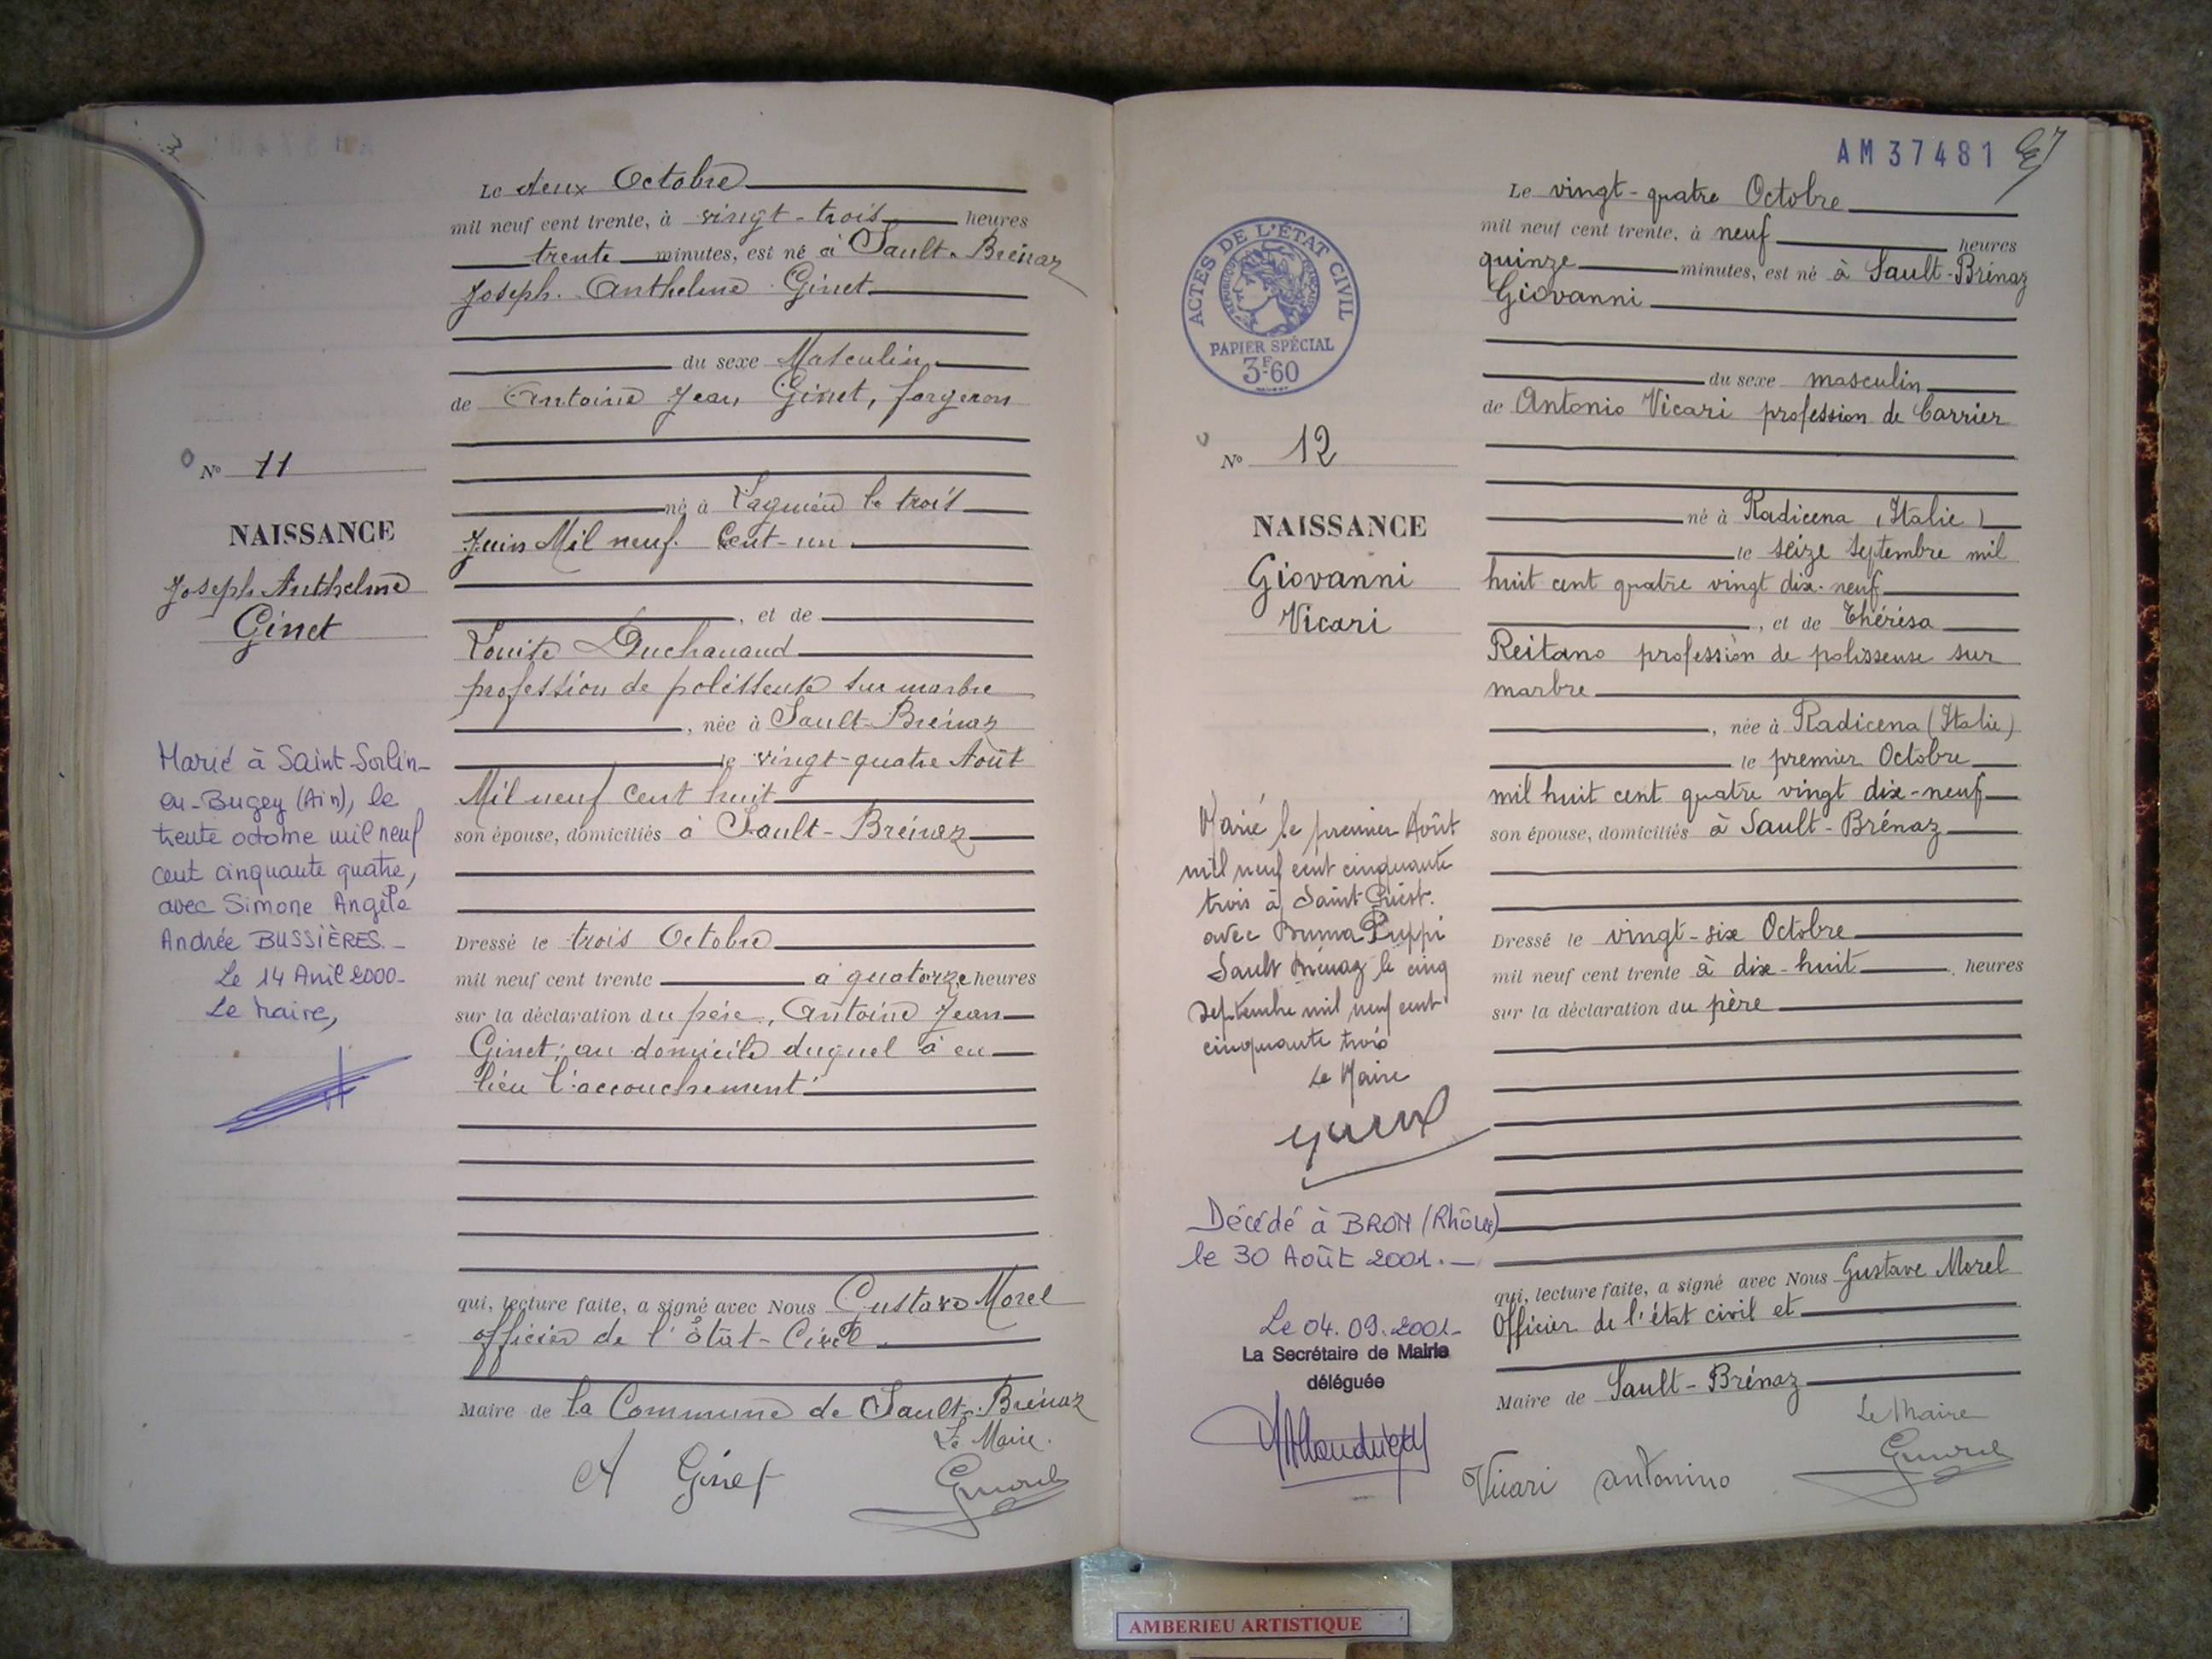 Le deux Octobre
mil neuf cent trente, à vingt-trois heures
trente minutes, est né à Sault-Brénaz
Joseph Anthelme Ginet
du sexe Masculin
de Antoine Jean Ginet, forgeron
né à Lagnieu le trois
Juin Mil neuf Cent-un
, et de
Louise Duchanaud
profession de polisseuse sur marbre
, née à Sault-Brénaz
le vingt-quatre Août
Mil neuf Cent huit
son épouse, domiciliés à Sault-Brénaz
Dressé le trois Octobre
mil neuf cent trente à quatorze heures
sur la déclaration du père, Antoine Jean
Ginet; au domicile duquel à eu
lieu l'accouchement
qui, lecture faite, a signé avec Nous Gustave Morel
officier de l'État-Civil
Maire de la Commune de Sault-Brénaz
Le Maire.
A Ginet
Gmorel
No 11
NAISSANCE
Joseph Anthelme
Ginet
Marié à Saint-Sorlin-
en-Bugey (Ain), le
trente octobre mil neuf
cent cinquante quatre,
avec Simone Angèle
Andrée BUSSIÈRES.-
Le 14 Avril 2000-
Le Maire,
AM 37481
ACTES DE L'ÉTAT CIVIL
RÉPUBLIQUE FRANÇAISE
PAPIER SPÉCIAL
3F60
No 12
NAISSANCE
Giovanni
Vicari
Marié le premier Août
mil neuf cent cinquante
trois à Saint Priest.
avec Puppi
Sault Brénaz le cinq
Septembre mil neuf cent
cinquante trois
Le Maire
Décédé à BRON (Rhône)
le 30 Août 2001.-
Le 04.09.2001-
La Secrétaire de Mairie
déléguée
Le vingt-quatre Octobre
mil neuf cent trente, à neuf heures
quinze minutes, est né à Sault-Brénaz
Giovanni
du sexe masculin
de Antonio Vicari profession de Carrier
né à Radicena (Italie)
le seize septembre mil
huit cent quatre vingt dix-neuf
, et de Thérésa
Reitano profession de polisseuse sur
marbre
, née à Radicena (Italie)
le premier Octobre
mil huit cent quatre vingt dix-neuf
son épouse, domiciliés à Sault-Brénaz
Dressé le vingt-six Octobre
mil neuf cent trente à dix-huit heures
sur la déclaration du père
qui, lecture faite, a signé avec Nous Gustave Morel
Officier de l'état civil et
Maire de Sault-Brénaz
Le Maire
Gmorel
Vicari antonino
AMBERIEU ARTISTIQUE